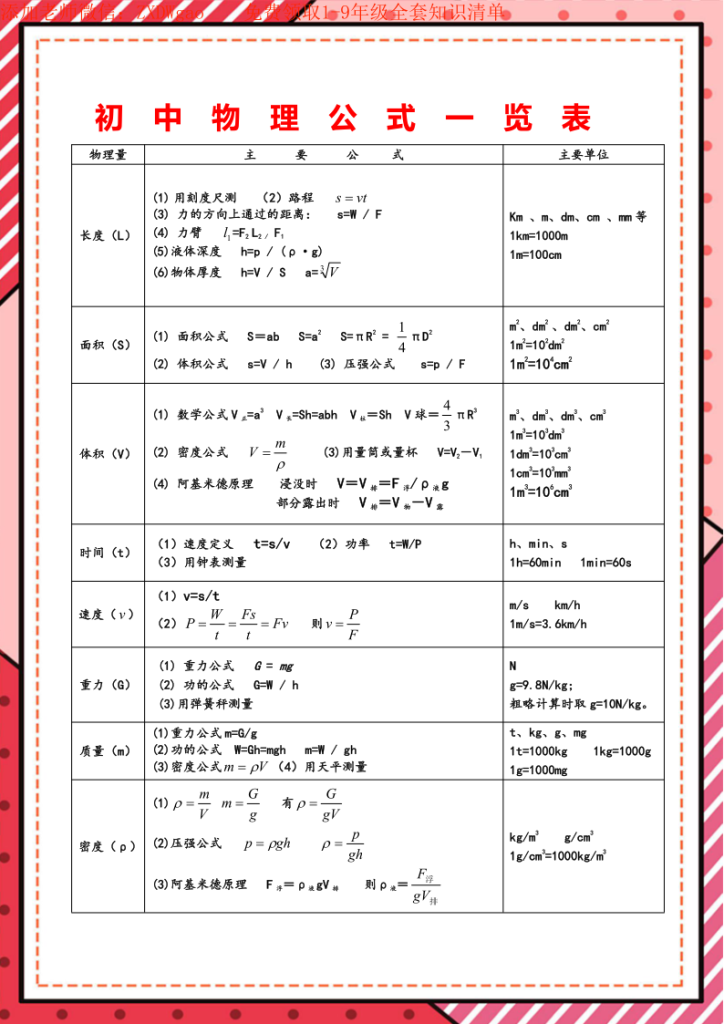 免费领取1-9年级全套知识清单
初 中 物 理 公 式 一 览 表
物理量 主 要 公 式 主要单位
长度（L）
(1) 用刻度尺测 （2）路程 s = vt
(3) 力的方向上通过的距离： s=W / F
(4) 力臂 l₁=F₂L₂／F₁
(5)液体深度 h=p / (ρ·g)
(6)物体厚度 h=V / S a=∛V
Km 、m、dm、cm 、mm等
1km=1000m
1m=100cm
面积（S）
(1) 面积公式 S＝ab S=a² S=πR² = 1/4 πD²
(2) 体积公式 s=V / h (3) 压强公式 s=p / F
m²、dm² 、dm²、cm²
1m²=10²dm²
1m²=10⁴cm²
体积（V）
(1) 数学公式V正=a³ V长=Sh=abh V柱＝Sh V球＝4/3 πR³
(2) 密度公式 V = m/ρ (3)用量筒或量杯 V=V₂－V₁
(4) 阿基米德原理 浸没时 V＝V排＝F浮/ρ液g
部分露出时 V排＝V物－V露
m³、dm³、dm³、cm³
1m³=10³dm³
1dm³=10³cm³
1cm³=10³mm³
1m³=10⁶cm³
时间（t）
（1）速度定义 t=s/v （2）功率 t=W/P
（3）用钟表测量
h、min、s
1h=60min 1min=60s
速度（v）
（1）v=s/t
（2）P = W/t = Fs/t = Fv 则v = P/F
m/s km/h
1m/s=3.6km/h
重力（G）
(1) 重力公式 G = mg
(2) 功的公式 G=W / h
(3)用弹簧秤测量
N
g=9.8N/kg；
粗略计算时取g=10N/kg。
质量（m）
(1)重力公式m=G/g
(2)功的公式 W=Gh=mgh m=W / gh
(3)密度公式m = ρV （4）用天平测量
t、kg、g、mg
1t=1000kg 1kg=1000g
1g=1000mg
密度（ρ）
(1) ρ = m/V m = G/g 有ρ = G/gV
(2)压强公式 p = ρgh ρ = p/gh
(3)阿基米德原理 F浮＝ρ液gV排 则ρ液＝F浮/gV排
kg/m³ g/cm³
1g/cm³=1000kg/m³